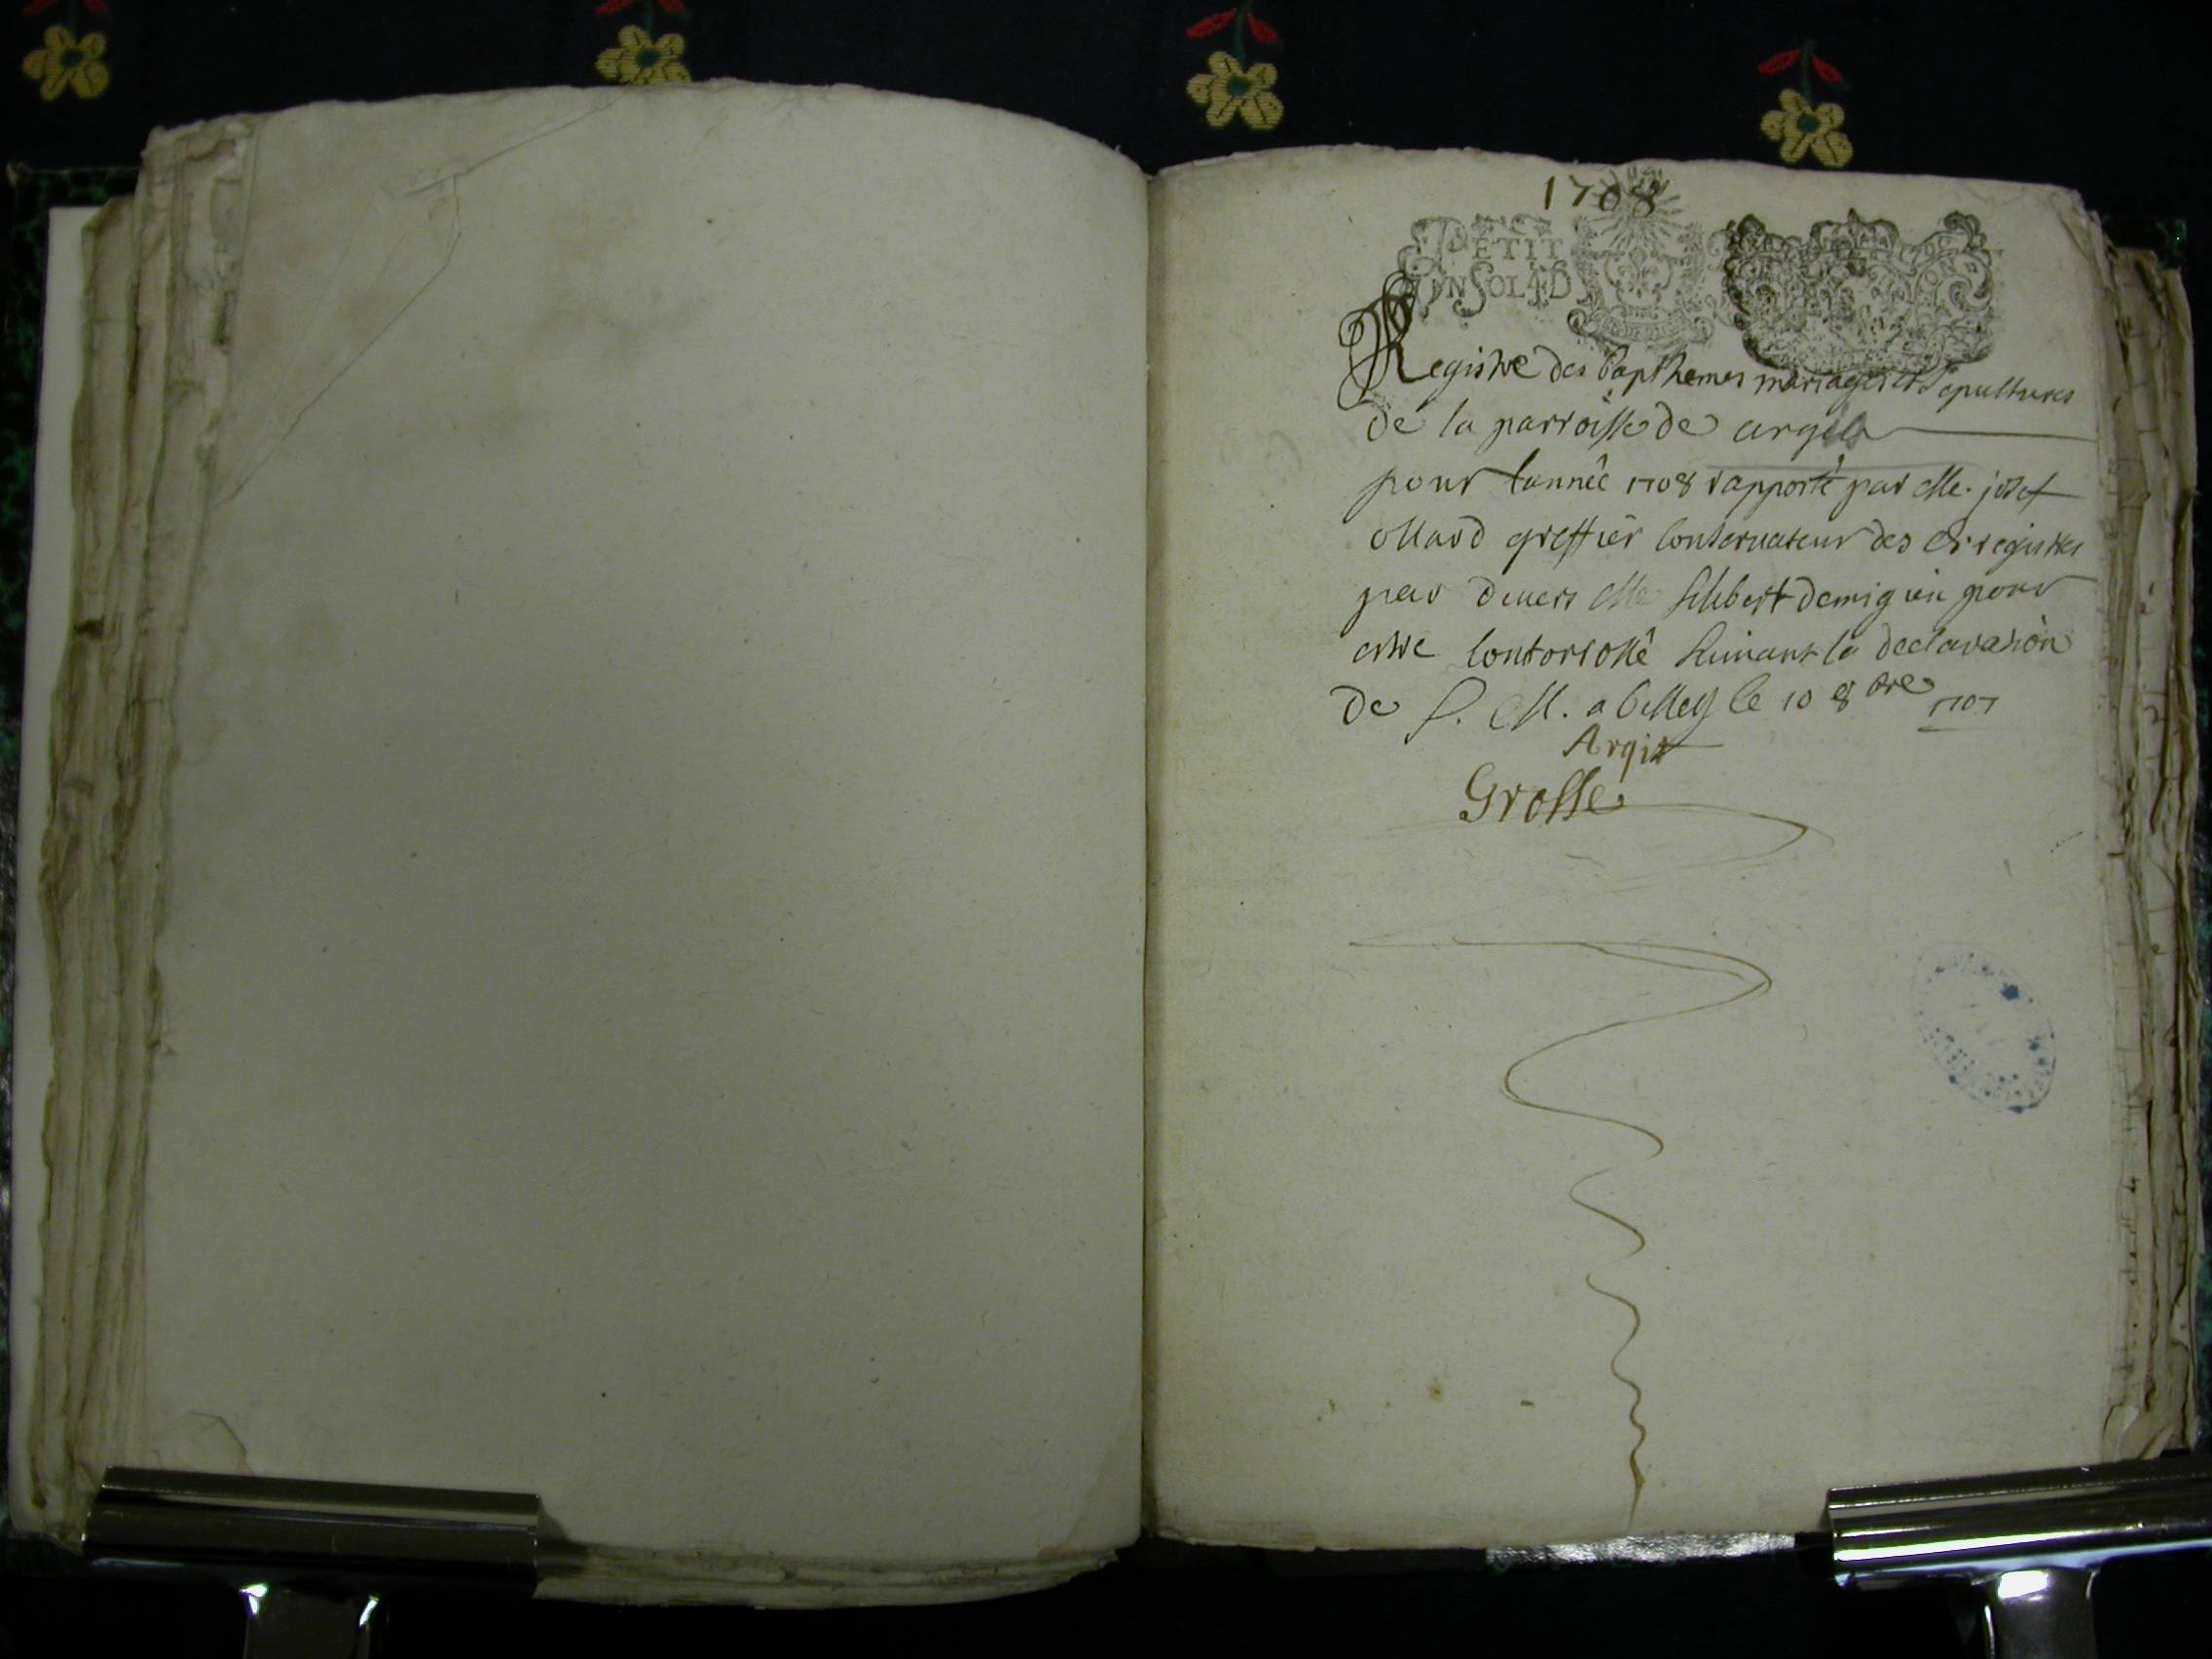 1708
PETIT
UN SOL 4 D
Registre des bapthemes mariages et Sepultures
de la parroisse de argis
pour lannée 1708 rapporté par Me. josef
greffier Conservateur des ds registres
par devers Me filibert demigieu pour
estre Controollé suivant la declaration
de S. M. a belley le 10 8bre 1707
Argis
Grosse